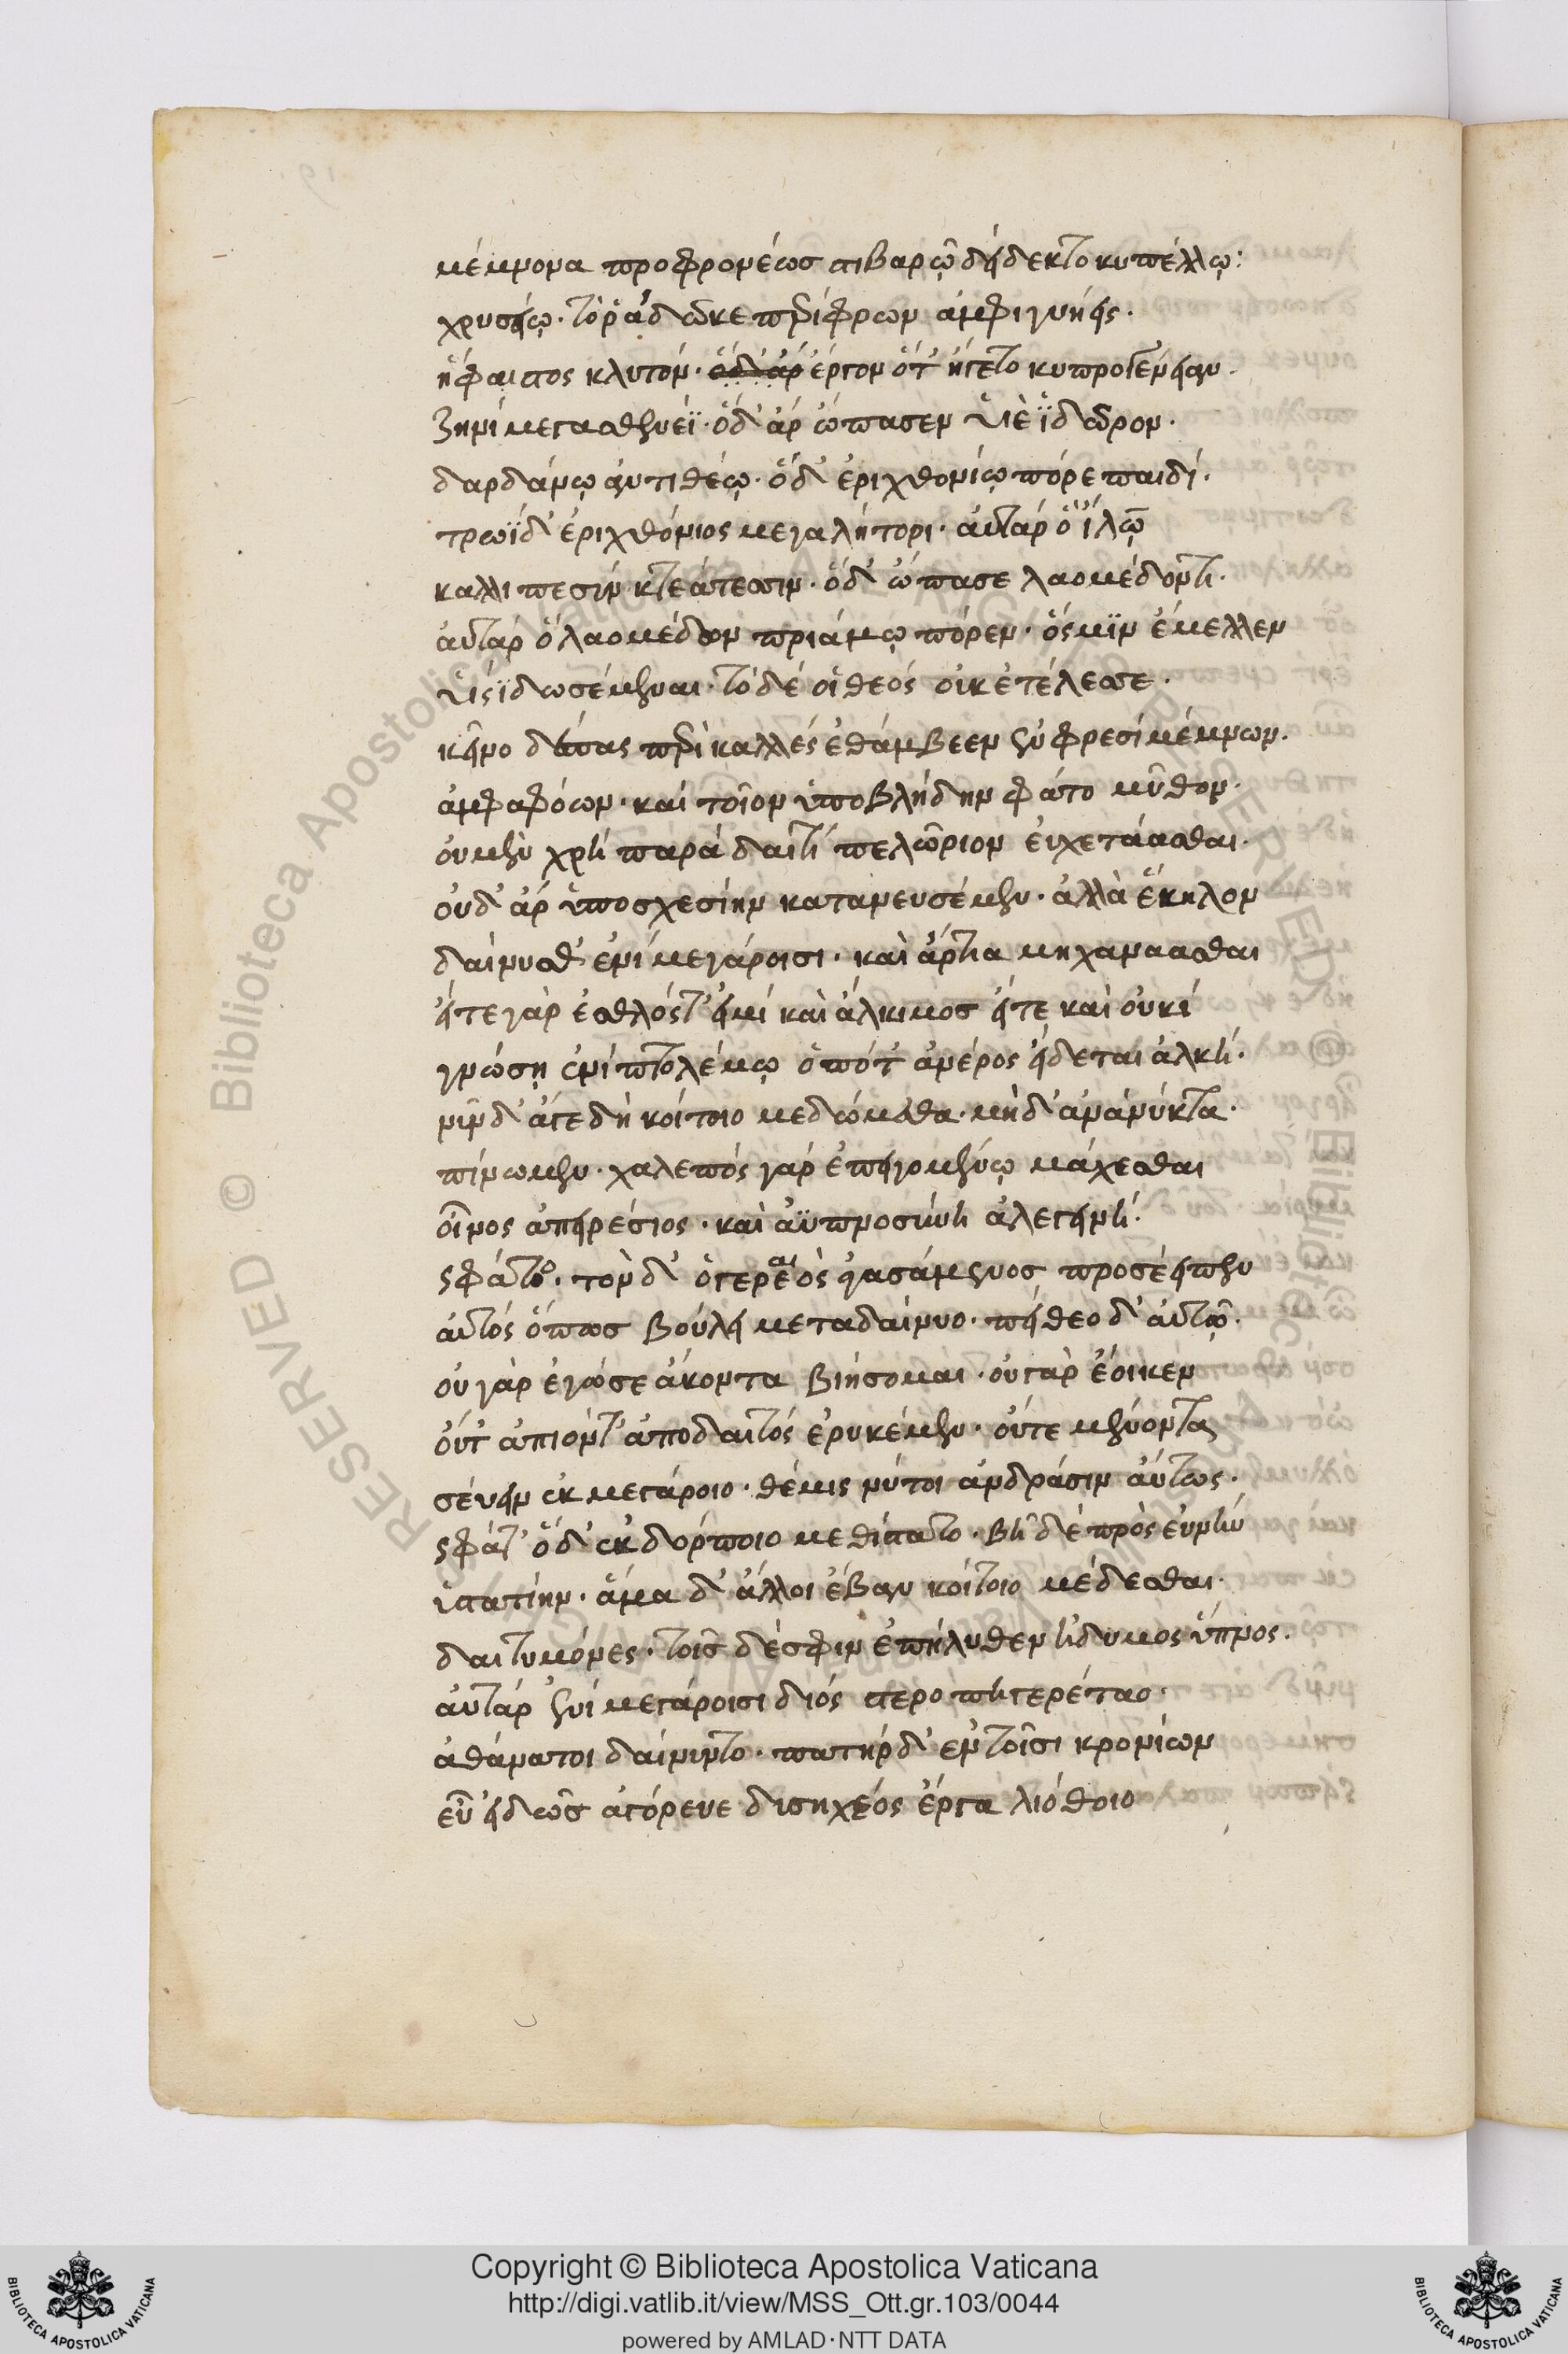 μέμνονα προφρονέως στιβαρῶ δείδεκτο κυπέλλω:
χρυσείω. τό ῥά δῶκε περίφρων ἀμφιγυήεις.
ἥφαιστος κλυτόν. ὅδ' ἄρ ἔργον ὅτ' ἤγετο κυπρογένειαν.
ζηνὶ μεγασθενέϊ. ὅδ' ἄρ ὤπασεν υἱέϊ δῶρον.
δαρδάνω ἀντιθέω. ὅδ' ἐριχθονίω πόρε παιδί.
τρωΐ δ' ἐριχθόνιος μεγαλήτορι. αὐτάρ ὅ ἴλω
κάλλιπε σὺν κτεάτεσσιν. ὅδ' ὤπασε λαομέδοντι.
αὐτάρ ὁ λαομέδων πριάμω πόρεν. ὅς μϊν ἔμελλεν
υἱέϊ δωσέμεναι. τὸ δέ οἱ θεός οὐκ ἐτέλεσσε.
κεῖνο δέπας περικαλλές ἐθάμβεεν ἐν φρεσὶ μέμνων.
ἀμφαφόων. καί τοῖον ὑποβλήδην φάτο μῦθον.
οὐ μὲν χρὴ παρὰ δαιτὶ πελώριον εὐχετάασθαι.
οὐδ' ἄρ ὑποσχεσίην κατανευσέμεν. ἀλλὰ ἕκηλον
δαίνυσθ' ἐνὶ μεγάροισι. καὶ ἄρτια μηχανάασθαι
εἴτε γὰρ ἐσθλός τ' εἰμὶ καὶ ἄλκιμος εἴτε καὶ οὐκὶ
γνώση ἐνὶ πτολέμω ὁπότ' ἀνέρος εἴδεται ἀλκή.
νῦν δ' ἄγε δὴ κοίτοιο μεδώμεθα. μὴ δ' ἀνὰ νύκτα.
πίνωμεν. χαλεπός γὰρ ἐπειγομένω μάχεσθαι
οἶνος ἀπειρέσιος. καὶ ἀϋπνοσύνη ἀλεγεινή.
ὣς φάτο. τὸν δ' ὁ γεραιὸς ἀγασάμενος προσέειπεν
αὐτός ὅπως βούλει μεταδαίνυο. πείθεο δ' αὐτῶ.
οὐ γὰρ ἐγώ σε ἄκοντα βιήσομαι. οὐ γὰρ ἔοικεν
οὔτ' ἀπιόντ' ἀπὸ δαιτός ἐρυκέμεν. οὔτε μένοντα
σεύειν ἐκ μεγάροιο. θέμις νύ τοι ἀνδράσιν αὔτως.
ὣς φάτ' ὅδ' ἐκ δόρποιο μεθίστατο. βῆ δὲ πρὸς εὐνὴν
ὑστατίην. ἅμα δ' ἄλλοι ἔβαν κοίτοιο μέδεσθαι.
δαιτυμόνες. τοῖς δὲ σφιν ἐπήλυθεν ἥδυμος ὕπνος.
αὐτάρ ἐνὶ μεγάροισι διός στεροπηγερέταο.
ἀθάνατοι δαίνυντο. πατὴρ δ' ἐν τοῖσι κρονίων
εὖ εἰδὼς ἀγόρευε δισηχέος ἔργα μόθοιο
Copyright © Biblioteca Apostolica Vaticana
http://digi.vatlib.it/view/MSS_Ott.gr.103/0044
powered by AMLAD·NTT DATA